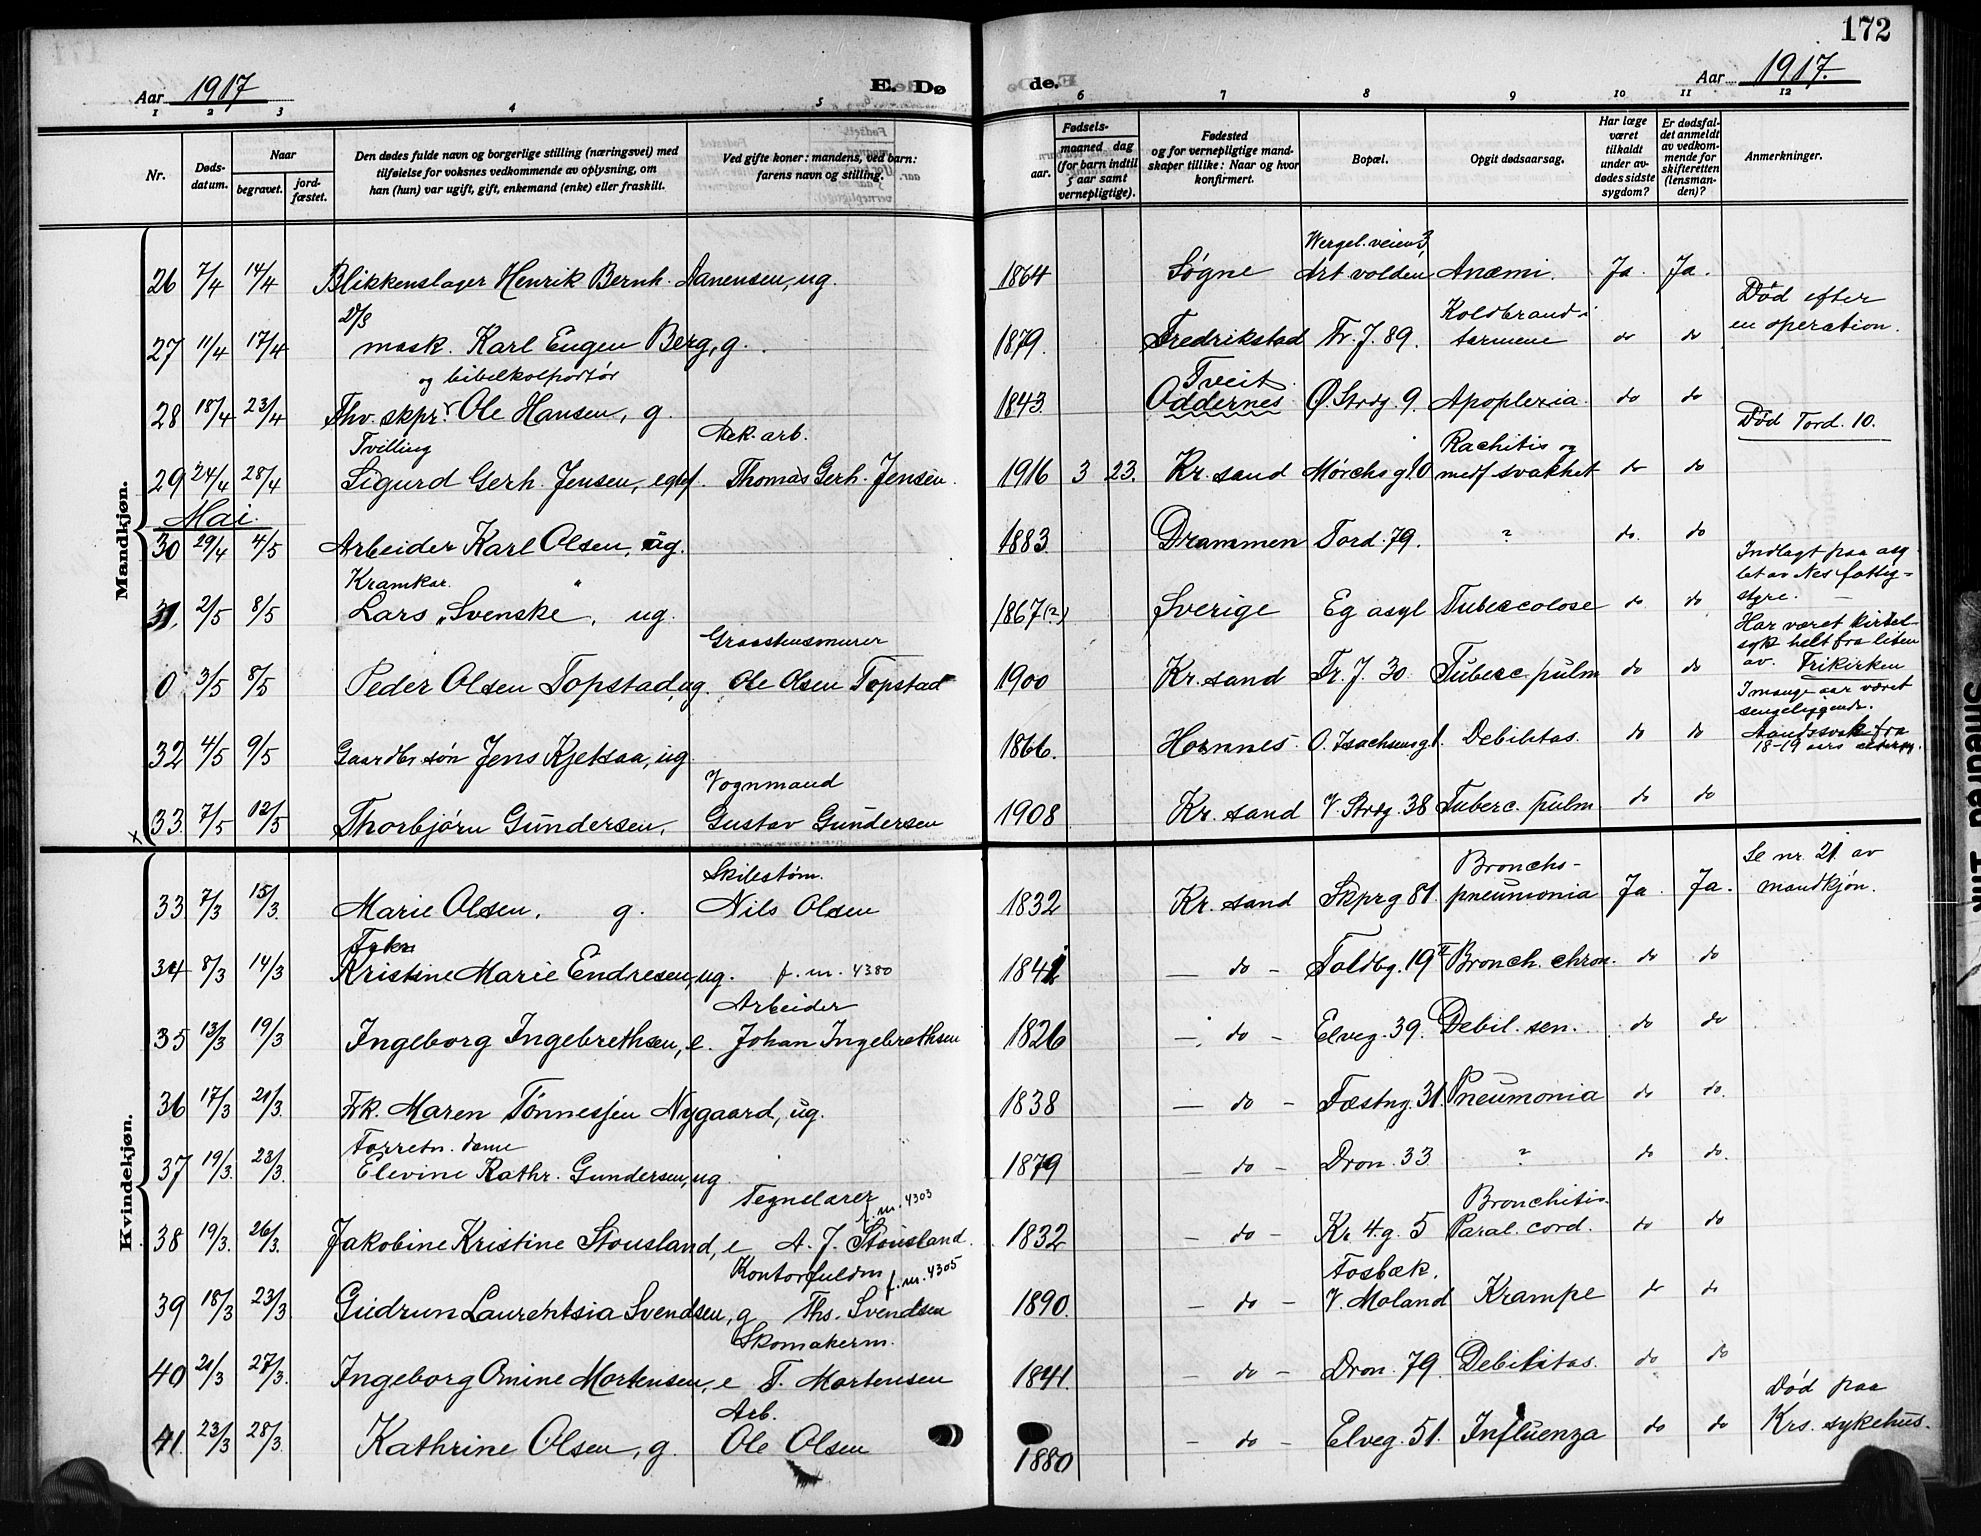 172
Aar 1917 E. Døde. Aar 1917.
1 2 3 4 5 6 7 8 9 10 11 12
Nr.
Døds-
datum.
Naar
begravet.
jord-
fæstet.
Den dødes fulde navn og borgerlige stilling (næringsvei) med
tilføielse for voksnes vedkommende av oplysning, om
han (hun) var ugift, gift, enkemand (enke) eller fraskilt.
Ved gifte koner: mandens, ved barn:
farens navn og stilling.
Fødsels-
aar.
maaned dag
(for barn indtil
5 aar samt
vernepligtige).
Fødested
og for vernepligtige mand-
skaper tillike: Naar og hvor
konfirmert.
Bopæl.
Opgit dødsaarsag.
Har læge
været
tilkaldt
under av-
dødes sidste
sygdom?
Er dødsfal-
det anmeldt
av vedkom-
mende for
skifteretten
(lensman-
den)?
Anmerkninger.
Mandkjøn.
Wergel. veien 3
26 7/4 14/4 Blikkenslager Henrik Bernh. Aanensen, ug. 1864 Søgne Art volden Anæmi. Ja. Ja.
D/S Koldbrand i Død efter
27 11/4 17/4 mask. Karl Eugen Berg, g. 1879. Fredrikstad Tr. J. 89. tarmene do do en operation.
og bibelkolportør Tveit
28 18/4 23/4 Thv. skpr. Ole Hansen, g. 1843. Oddernes Ø. Strdg. 9. Apoplexia. do do
Tvilling Mek. arb. Rachitis og Død Tord. 10.
29 24/4 28/4 Sigurd Gerh. Jensen, egtef. Thomas Gerh. Jensen. 1916 3 23. Kr. sand Mørchs g 10 medf svakhet do do
Mai.
30 29/4 4/5 Arbeider Karl Olsen, ug. 1883. Drammen Tord. 79. ? do. do
Kramkar. Indlagt paa asy-
let av Nes fattig-
31. 2/5 8/5 Lars "Svenske", ug. 1867(?) Sverige Eg asyl Tubercolose do do styre.
Graastensmurer Har været kirtel-
syk helt fra liten
0 3/5 8/5 Peder Olsen Topstad, ug. Ole Olsen Topstad 1900 Kr. sand Tr. J. 30 Tuberc. pulm do do av. Frikirken
I mange aar været
sengeliggende.
32 4/5 9/5 Gaardbr søn Jens Kjetsaa, ug. 1866. Hornnes. O. Isachsens g 1. Debilitas. do do Aandssvak fra
18-19 aars
Vognmand
x 33. 7/5 12/5 Thorbjørn Gundersen, Gustav Gundersen 1908 Kr. sand V. Strdg. 38 Tuberc. pulm do do
Kvindekjøn.
Skibstøm. Broncho- Se nr. 21 av
33 7/3 15/3. Marie Olsen, g. Nils Olsen 1832 Kr. sand Skprg 81. pneumonia Ja. Ja. mandkjøn.
Frkn
34 8/3 14/3 Kristine Marie Endresen, ug. f. m. 4380 1841 — do — Toldbg. 19 II Bronch. chron. do do
Arbeider
35 13/3 19/3 Ingeborg Ingebrethsen, e. Johan Ingebrethsen 1826 — do — Elveg. 39. Debil. sen. do do
36 17/3 21/3. Frk. Maren Tønnesjen Nygaard, ug. 1838 — do — Fæstng. 31. Pneumonia do do.
Forretn. dame
37 19/3. 23/3. Elevine Kathr. Gundersen, ug 1879 — do — Dron. 33 ? do do.
Tegnelærer f. m. 4303 Bronchitis.
38 19/3. 26/3. Jakobine Kristine Stousland, e A. J. Stousland. 1832 — do — Kr 4. g. 5 Paral. cord. do do
Kontorfuldm f. m. 4305 Fosbæk.
39 18/3 23/3. Gudrun Laurentsia Svendsen, g Ths. Svendsen 1890. — do — V. Moland Krampe do do
Skomakerm.
40 21/3 27/3. Ingeborg Omine Mortensen, e T. Mortensen 1841. — do — Dron. 79. Debilitas. do do
Arb. Død paa
41. 23/3 28/3 Kathrine Olsen, g. Ole Olsen 1880 — do — Elveg. 51. Influenza do do Krs. sykehus.